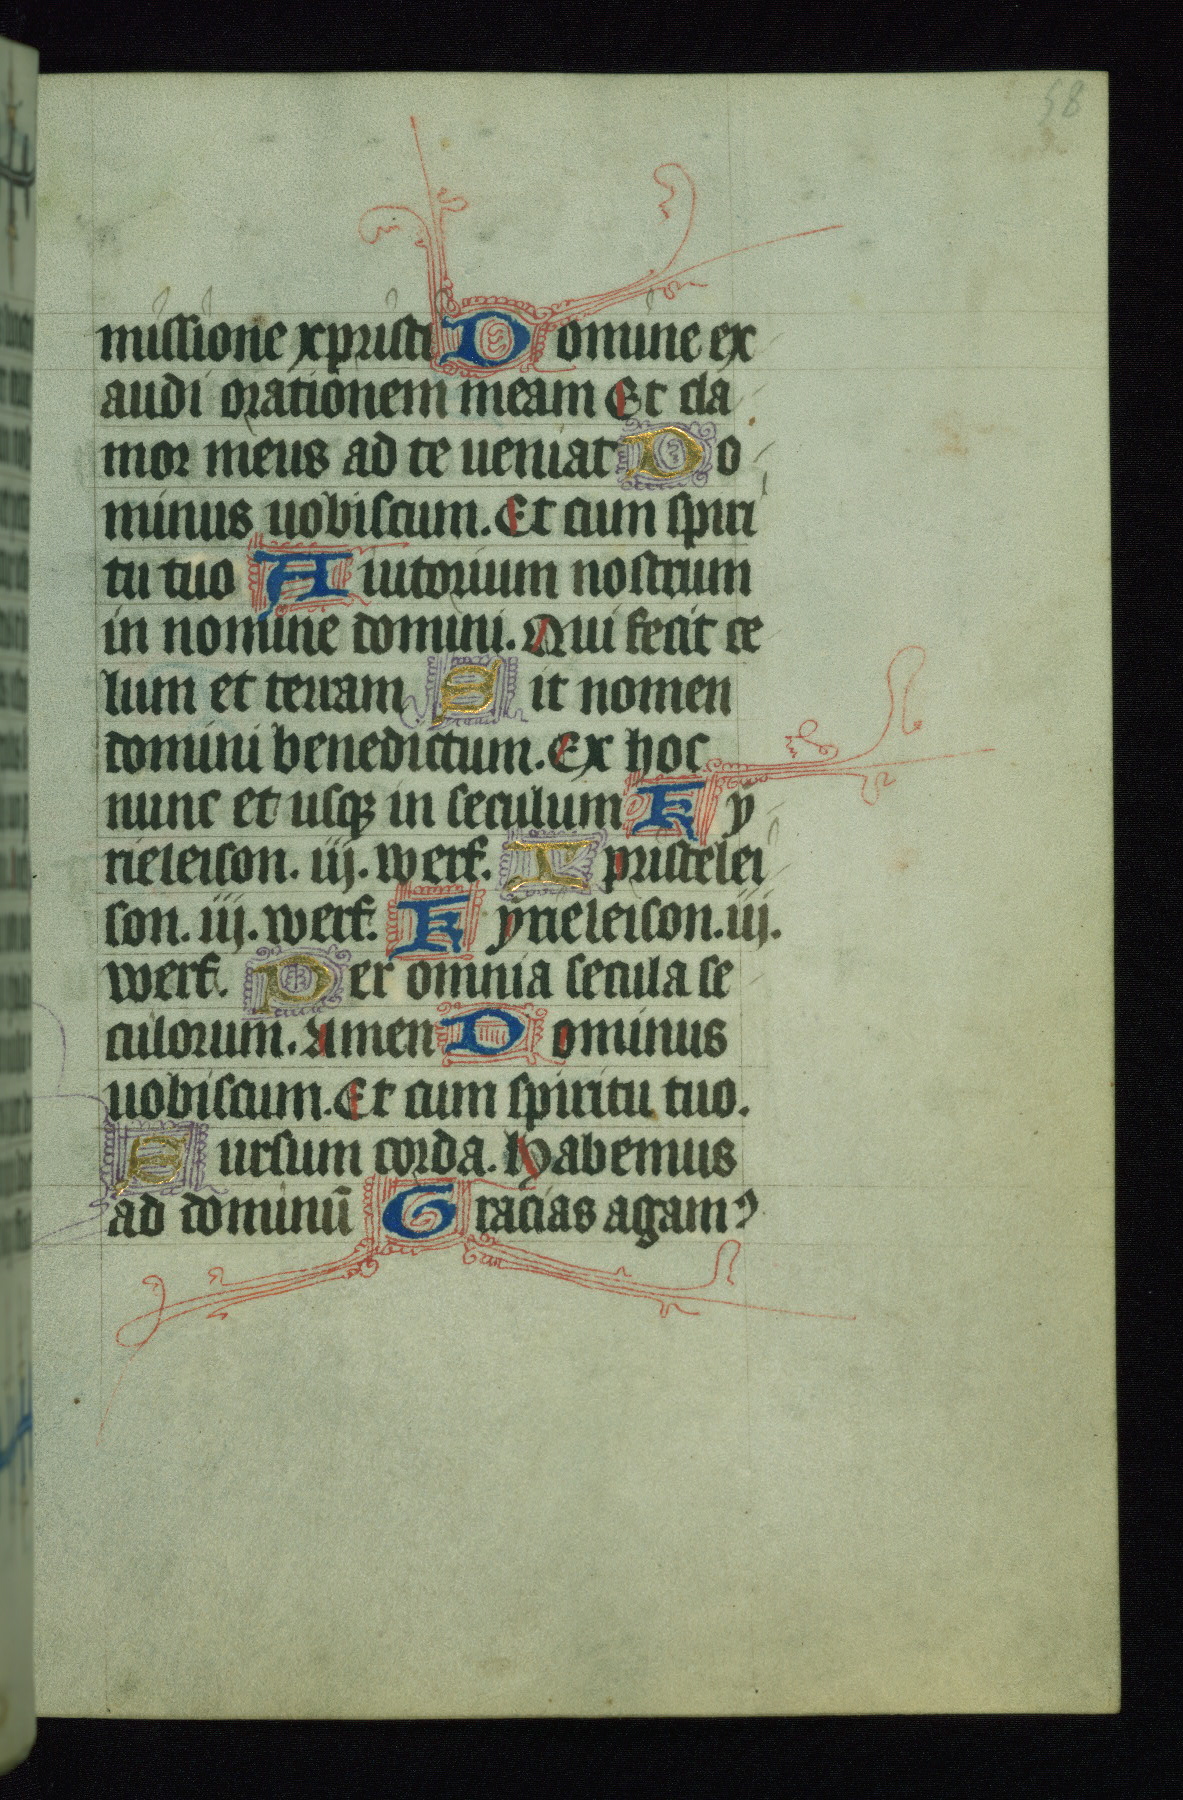 58
missione xpristi Domine ex
audi orationem meam Et cla
mor meus ad te ueniat Do
minus uobiscum. Et cum spiri
tu tuo Aiutorium nostrum
in nomine domini. Qui fecit ce
lum et terram Sit nomen
domini benedictum. Ex hoc
nunc et usqꝫ in seculum Ky
rieleison. iij. werf. Xpristelei
son. iij. werf. Kyrieleison. iij.
werf. Per omnia secula se
culorum. Amen Dominus
uobiscum. Et cum spiritu tuo.
Sursum corda. Habemus
ad dominū Gracias agamꝰ